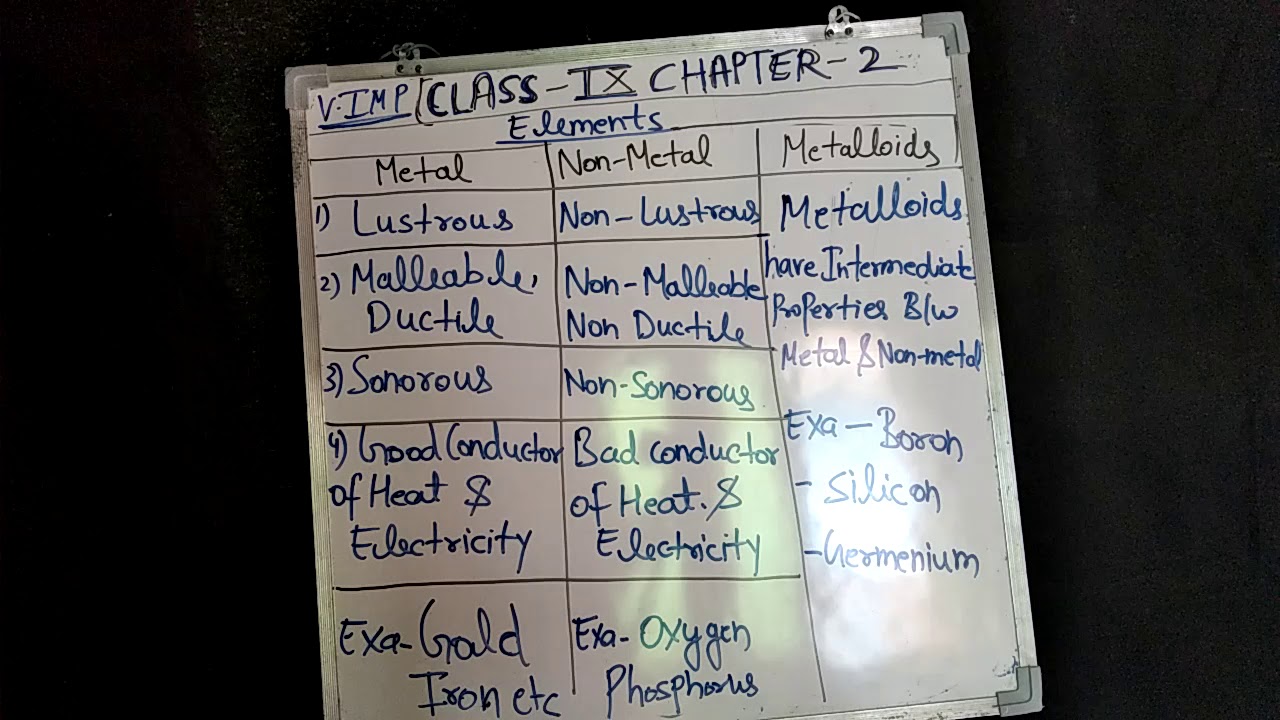 V. IMP CLASS - IX CHAPTER - 2
Elements
Metal Non-Metal Metalloids
1) Lustrous
Non-Lustrous
2) Malleable,
Ductile
Non-Malleable
Non Ductile
3) Sonorous
Non-Sonorous
4) Good Conductor
of Heat &
Electricity
Bad conductor
of Heat. &
Electricity
Exa- Gold
Iron etc
Exa- Oxygen
Phosphorus
Metalloids
have Intermediate
Properties B/w
Metal & Non-metal
Exa - Boron
- Silicon
- Germenium